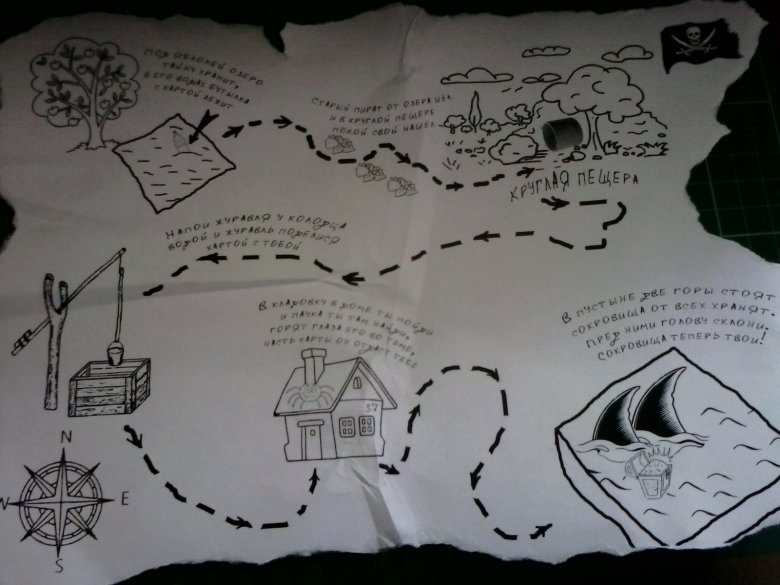 ПОД ЯБЛОНЕЙ ОЗЕРО
ТАЙНУ ХРАНИТ,
В ЕГО ВОДАХ БУТЫЛКА
С КАРТОЙ ЛЕЖИТ
СТАРЫЙ ПИРАТ ОТ ОЗЕРА ШЕЛ
И В КРУГЛОЙ ПЕЩЕРЕ
ПОКОЙ СВОЙ НАШЕЛ
КРУГЛАЯ ПЕЩЕРА
НАПОИ ЖУРАВЛЯ У КОЛОДЦА
ВОДОЙ И ЖУРАВЛЬ ПОДЕЛИСЯ
КАРТОЙ С ТОБОЙ
В КЛАДОВКУ В ДОМЕ ТЫ ПОЙДИ
И ПАУКА ТЫ ТАМ НАЙДИ,
ГОРЯТ ГЛАЗА ЕГО ВО ТЬМЕ,
ЧАСТЬ КАРТЫ ОН ОТДАСТ ТЕБЕ
37
В ПУСТЫНЕ ДВЕ ГОРЫ СТОЯТ
СОКРОВИЩА ОТ ВСЕХ ХРАНЯТ.
ПРЕД НИМИ ГОЛОВУ СКЛОНИ,
СОКРОВИЩА ТЕПЕРЬ ТВОИ!
N
W E
S